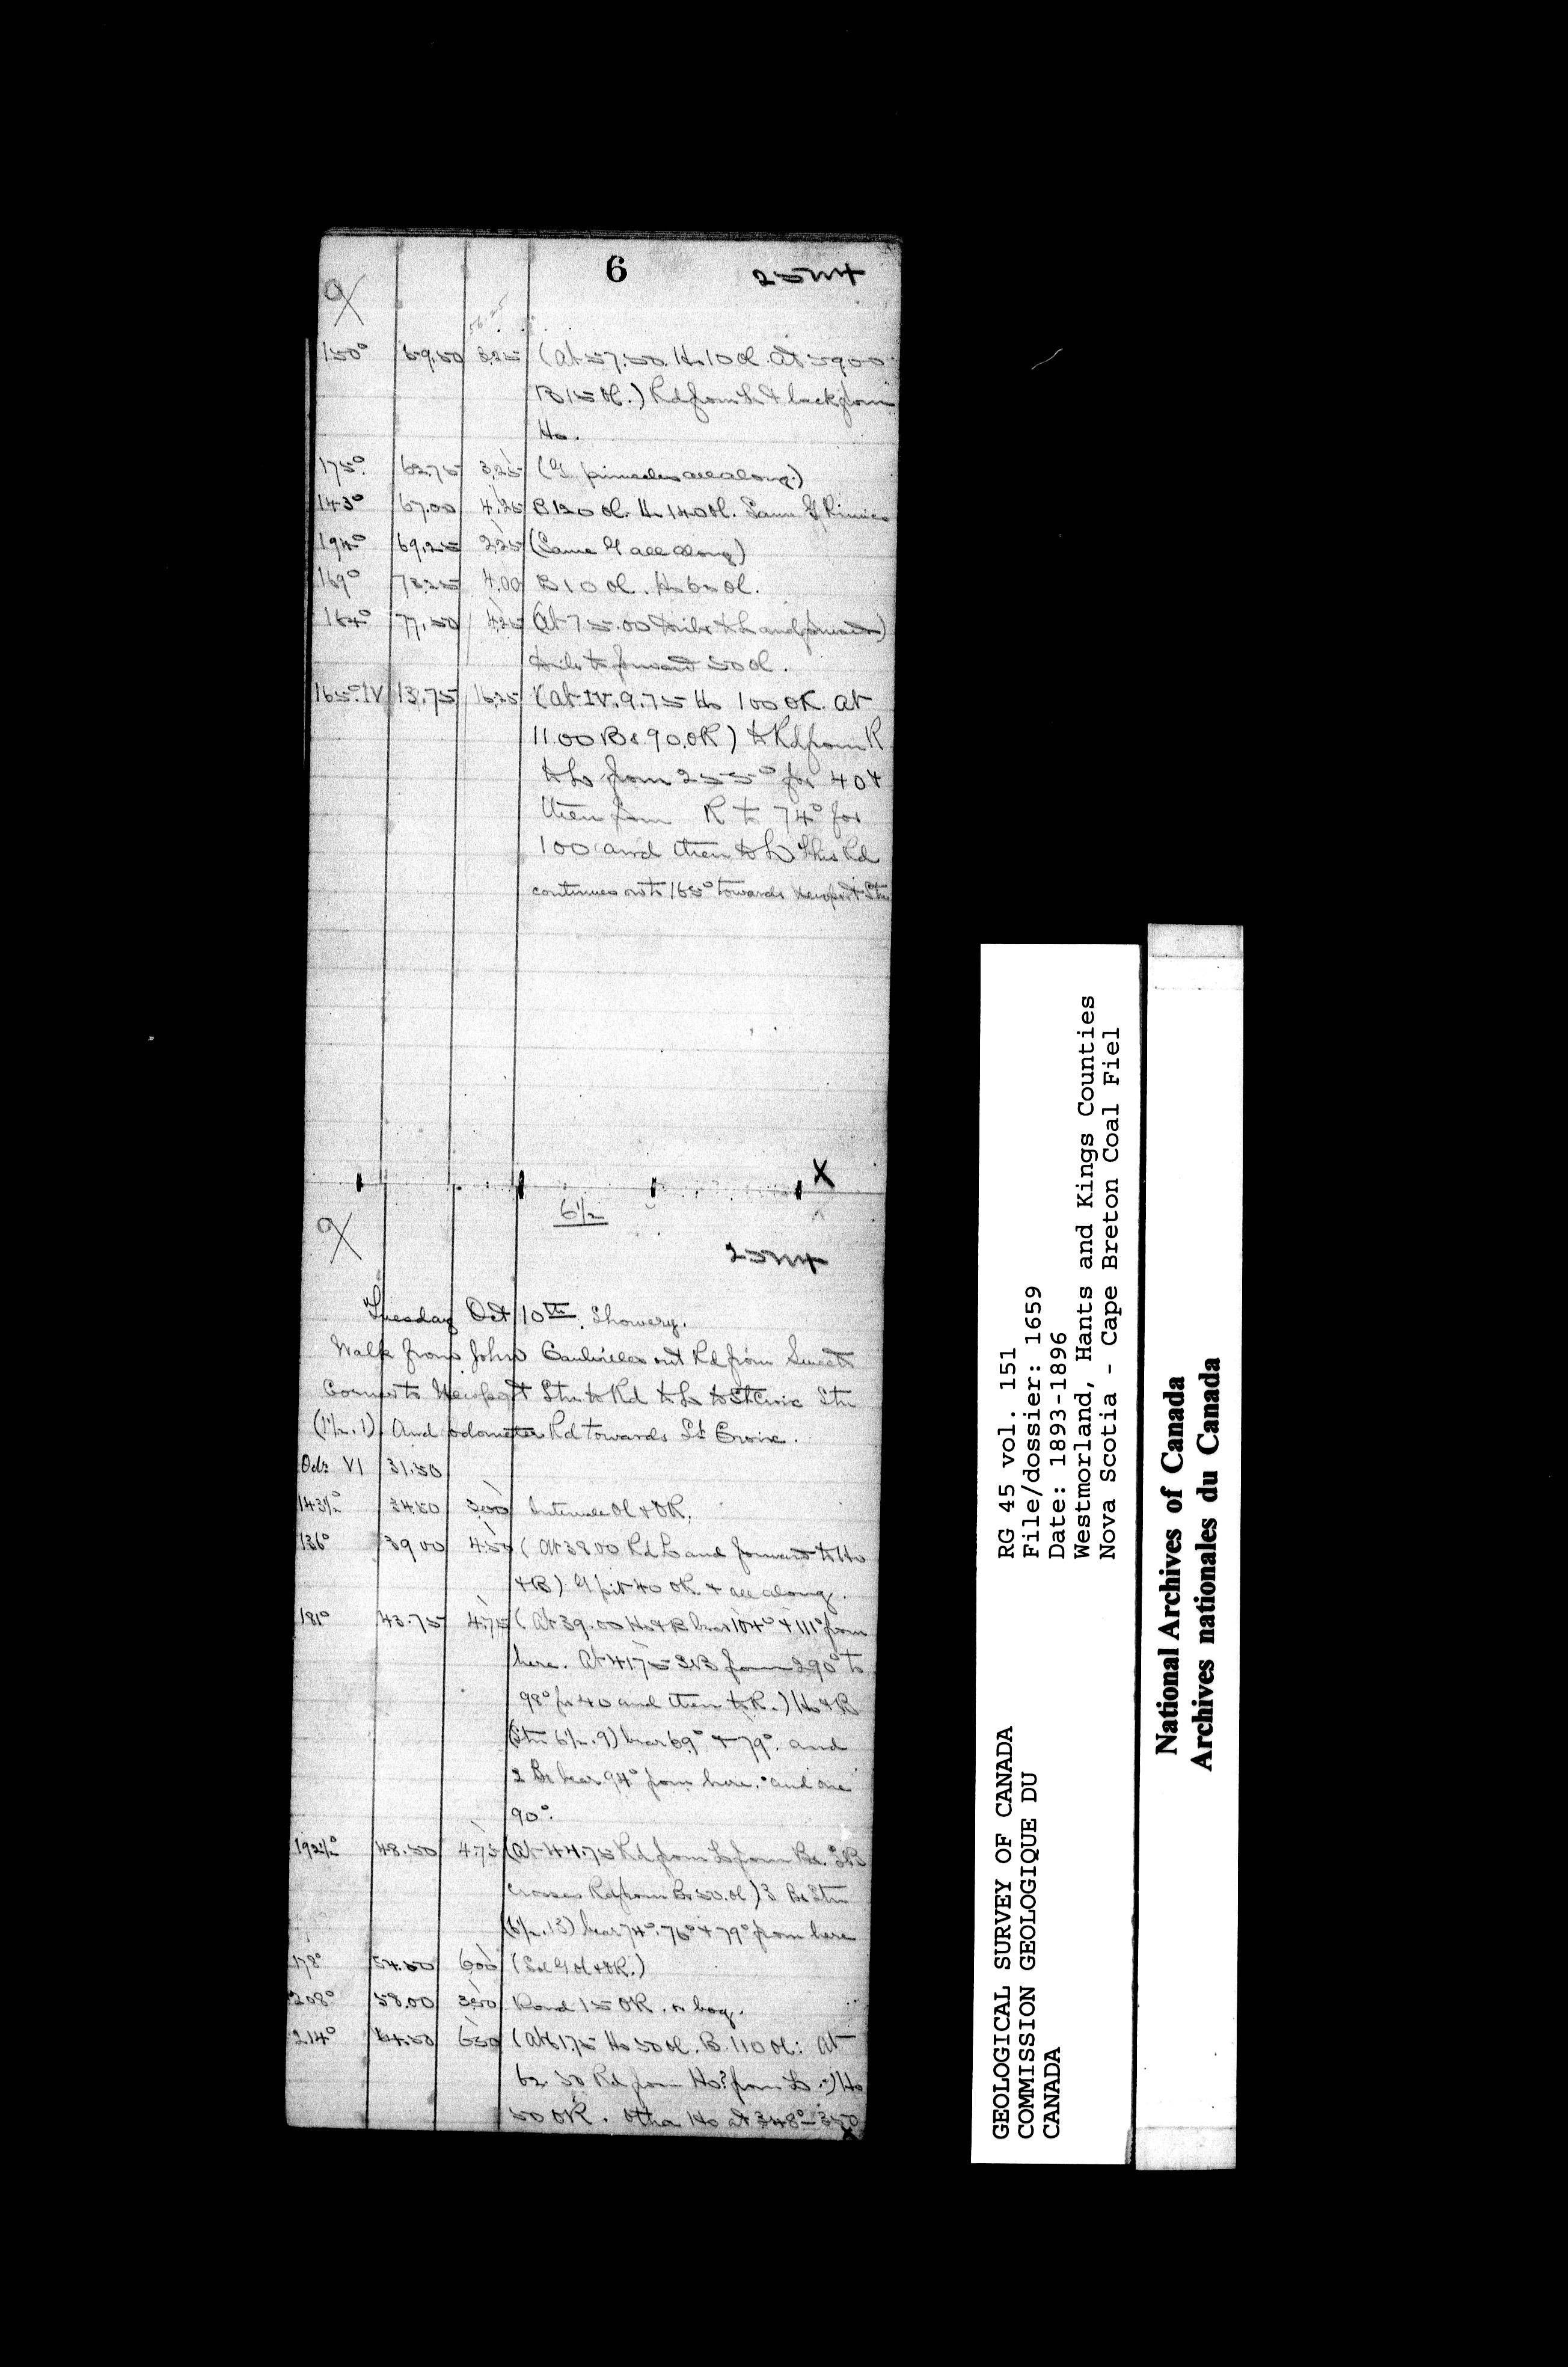 6
150° 59.50 3.25 (At 57.50. Ho 10 OL. At 59.00
B 15 OL.) Rd from L & back from
Ho.
175° 62.75 3.25 (G pinnacles all along.)
143° 67.00 4.25 B 120 OL. Ho 140 OL. Same G
194° 69.25 2.25 (Same G all along)
169° 73.25 4.00 B 10 OL. Ho 60 OL.
164° 77.50 4.25 (At 75.00 to L and forward)
to forward 50 OL.
165° IV 13.75 16.25 (At IV. 9.75 Ho 100 OR. At
11.00 Bs 90. OR) to Rd from R
to L from 255° for 40 &
then from R to 74° for
100 and then to L This Rd
continues on to 165° towards Newport Stn
X
6 1/2
Tuesday Oct 10th. Showery.
Walk from John out Rd from Sweets
Corner to Newport Stn to Rd to L to St Croix Stn
(1 1/2. 1) And odometer Rd towards St Croix.
Odr VI 31.50
143 1/2° 34.50 3.00 Intervale OL & OR.
136° 39.00 4.50 (At 38.00 Rd L and forward to Ho
& B) G pit 40 OR & all along.
181° 43.75 4.75 (At 39.00 Ho & B bear 104° & 111° from
here. At 41.75 SB from 290° to
98° for 40 and then to R.) Ho & B
(Stn 6 1/2. 9) bear 69° & 79°. and
2 Bs bear 94° from here. and one
90°.
192 1/2° 48.50 4.75 (At 44.75 Rd from L from Bs. SB
crosses Rd from Bs 50. OL) 3 Bs Stn
(6 1/2. 13) bear 74°. 76° & 79° from here
178° 54.50 6.00 (Sd G OL & OR.)
208° 58.00 3.50 Pond 15 OR. or bog.
214° 64.50 6.50 (At 61.75 Ho 50 OL. B. 110 OL: At
62.50 Rd from Ho? from L.) Ho
50 OR. Other Ho at 348° - 350
GEOLOGICAL SURVEY OF CANADA
COMMISSION GEOLOGIQUE DU
CANADA
RG 45 vol. 151
File/dossier: 1659
Date: 1893-1896
Westmorland, Hants and Kings Counties
Nova Scotia - Cape Breton Coal Fiel
National Archives of Canada
Archives nationales du Canada